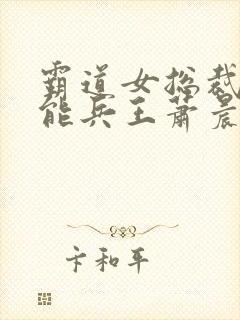 霸道女总裁
能兵王萧晨
卞和平